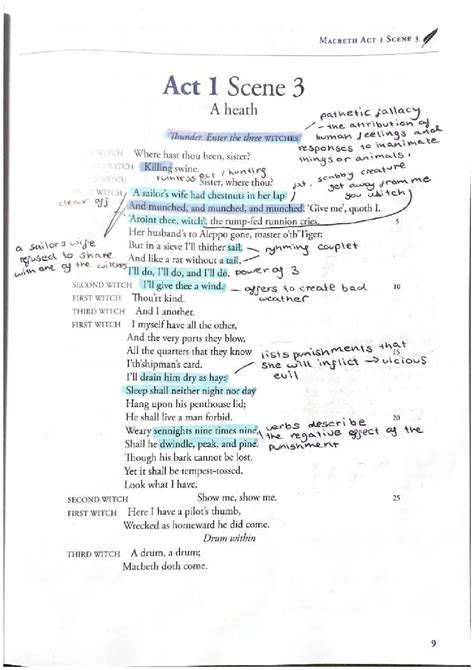 MACBETH ACT 1 SCENE 3
Act 1 Scene 3
A heath
pathetic fallacy
- the attribution of
human feelings and
responses to inanimate
things or animals.
Thunder. Enter the three WITCHES
WITCH Where hast thou been, sister?
WITCH Killing swine.
ruthless act / hunting
WITCH Sister, where thou?
WITCH A sailor's wife had chestnuts in her lap
fat, scabby creature
get away from me
you witch
clear off
And munched, and munched, and munched. 'Give me', quoth I.
'Aroint thee, witch', the rump-fed runnion cries. 5
Her husband's to Aleppo gone, master o'th'Tiger:
a sailors wife
refused to share
with one of the witches
But in a sieve I'll thither sail, - ryhming couplet
And like a rat without a tail,
I'll do, I'll do, and I'll do. power of 3
SECOND WITCH I'll give thee a wind. - offers to create bad 10
weather
FIRST WITCH Thou'rt kind.
THIRD WITCH And I another.
FIRST WITCH I myself have all the other,
And the very ports they blow,
All the quarters that they know 15
I'th'shipman's card.
lists punishments that
she will inflict → vicious
evil
I'll drain him dry as hay:
Sleep shall neither night nor day
Hang upon his penthouse lid;
He shall live a man forbid. 20
Weary sennights nine times nine,
Shall he dwindle, peak, and pine.
verbs describe
the negative effect of the
punishment
Though his bark cannot be lost,
Yet it shall be tempest-tossed.
Look what I have.
SECOND WITCH Show me, show me. 25
FIRST WITCH Here I have a pilot's thumb,
Wrecked as homeward he did come.
Drum within
THIRD WITCH A drum, a drum;
Macbeth doth come.
9